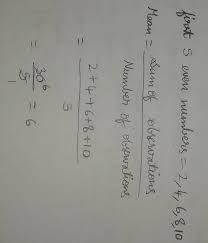 first 5 even numbers = 2,4,6,8,10
Mean = Sum of observations
Number of observations
= 2+4+6+8+10
5
= 30 6
5 1
= 6